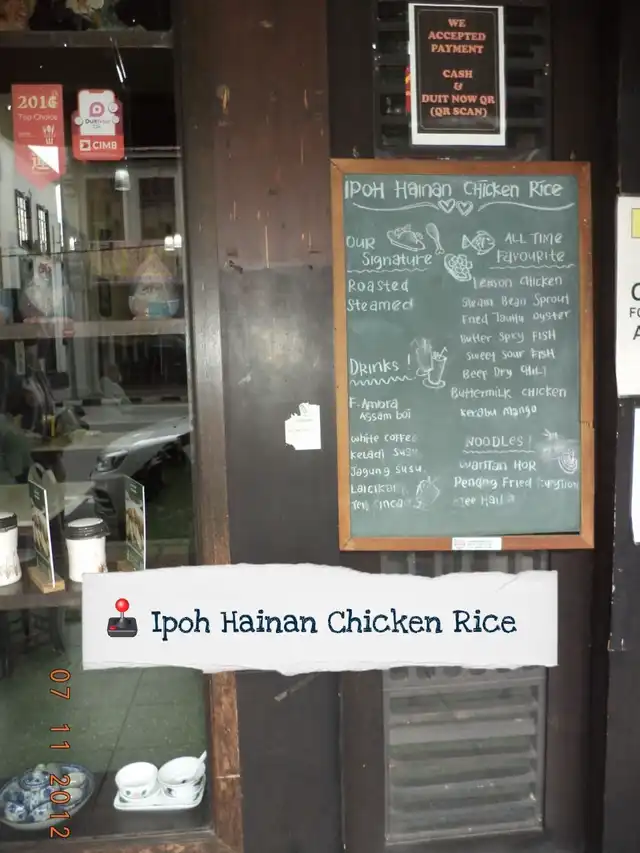 WE
ACCEPTED
PAYMENT
CASH
&
DUIT NOW QR
(QR SCAN)
2016
Top Choice
CIMB
IPOH HAINAN CHICKEN RICE
OUR
Signature
Roasted
Steamed
DRINKS!
F. Ambra
Assam boi
white coffee
keladi susu
Jagung susu
ALL TIME
Favourite
Lemon chicken
Steam Bean Sprout
Fried Tauhu oyster
Butter Spicy FISH
Sweet Sour FISH
Beef Dry Chili
Buttermilk chicken
kerabu mango
NOODLES!
Wantan HOR
Penang Fried
🕹️ Ipoh Hainan Chicken Rice
07 11 2012